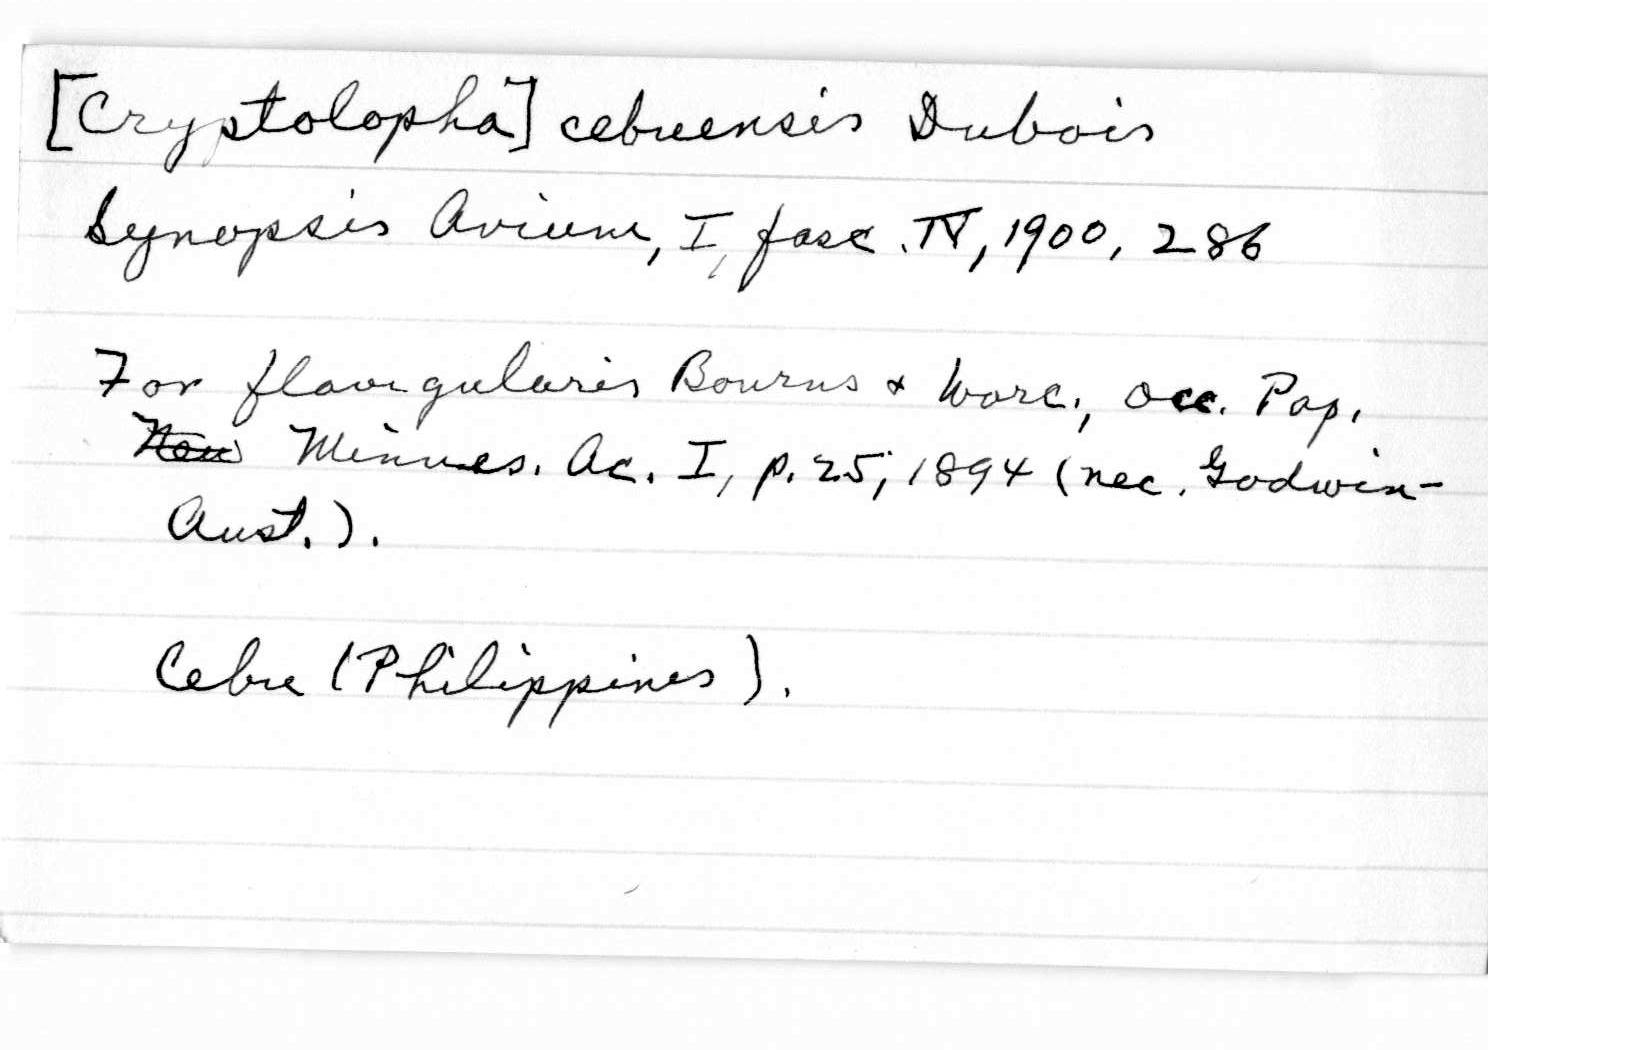 [Cryptolopha] cebuensis Dubois
Synopsis Avium, I, fasc. IV, 1900, 286
For flavigularis Bourns & Worc., Occ. Pap.
~~New~~ Minnes. Ac. I, p. 25, 1894 (nec. Godwin-
Aust.).
Cebu (Philippines).